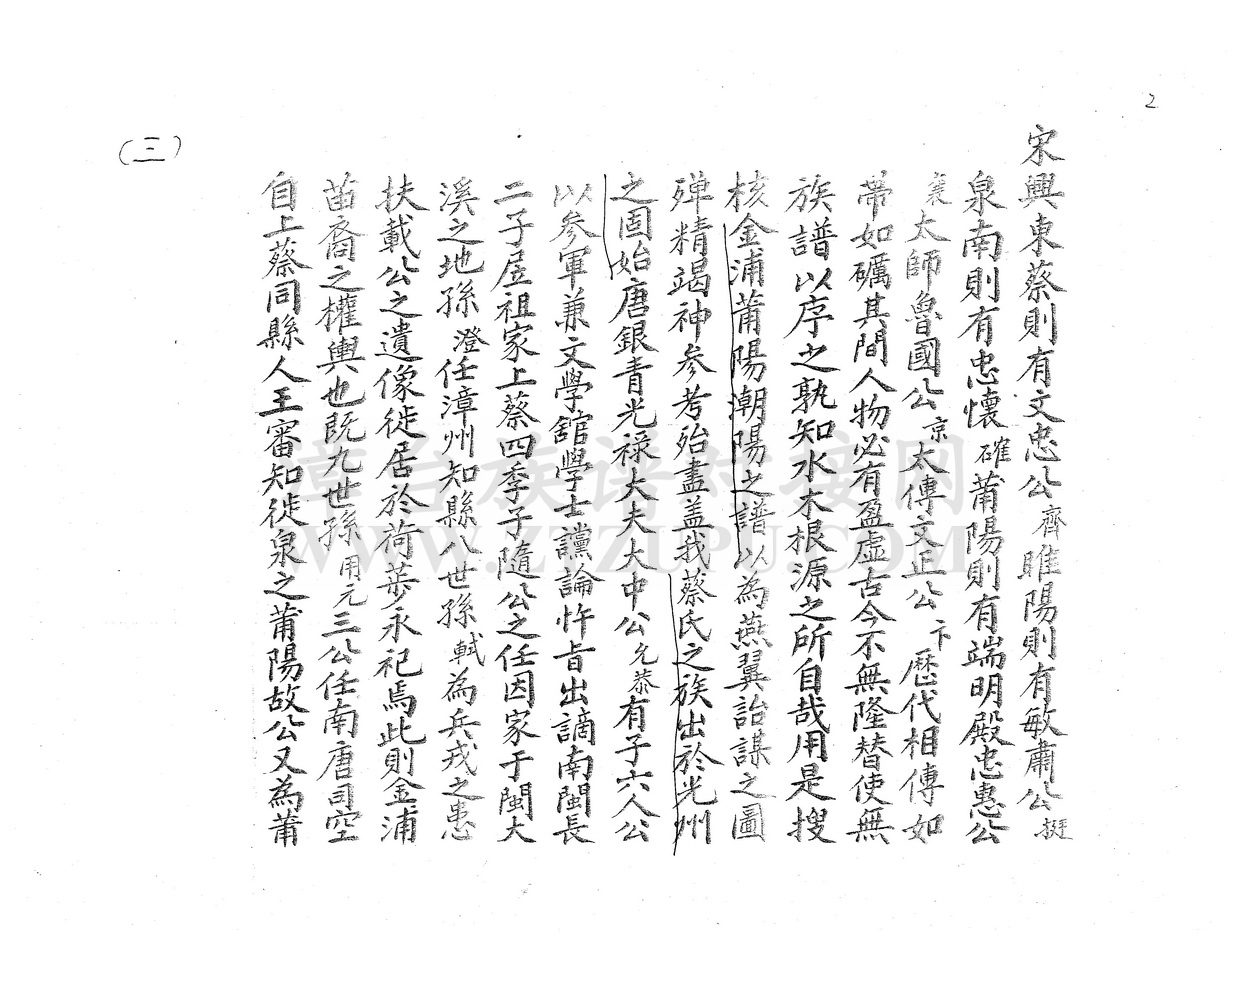 2
宋興東蔡則有文忠公齊睢陽則有敏肅公挺
泉南則有忠懷確莆陽則有端明殿忠惠公
襄太師魯國公京太傅文正公卞歷代相傳如
帶如礪其間人物必有盈虛古今不無隆替使無
族譜以序之孰知水木根源之所自哉用是搜
核金浦莆陽潮陽之譜以為燕翼詒謀之圖
殫精竭神參考殆盡蓋我蔡氏之族出於光州
之固始唐銀青光祿大夫大中公允恭有子六人公
以參軍兼文學舘學士讜論忤旨出謫南閩長
二子居祖家上蔡四季子隨公之任因家于閩大
溪之地孫澄任漳州知縣八世孫軾為兵戎之患
扶載公之遺像徙居於荷步永祀焉此則金浦
苗裔之權輿也既九世孫用元三公任南唐司空
自上蔡同縣人王審知徙泉之莆陽故公又為莆
（三）
章台族譜對接網
WWW.ZTZUPU.COM